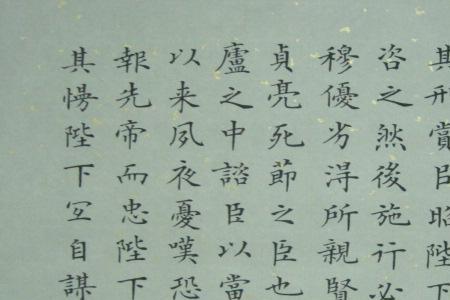 其刑賞臣昭陛下
咨之然後施行必
穆優劣得所親賢
貞亮死節之臣也
廬之中諮臣以當
以来夙夜憂嘆恐
報先帝而忠陛下
其慢陛下冝自謀